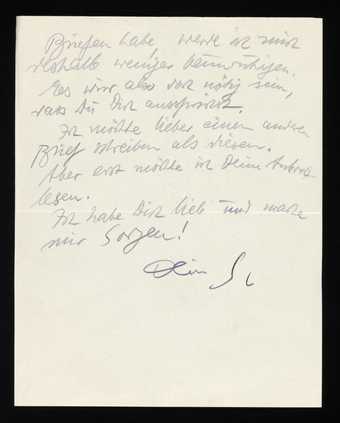 Briefen habe, werde ich mich
deshalb weniger beunruhigen.
Es wird also sehr nötig sein,
dass Du Dich aussprichst.
Ich möchte lieber einen anderen
Brief schreiben als diesen.
Aber erst möchte ich Deine Antwort
lesen.
Ich habe Dich lieb und mache
mir Sorgen!
Dein